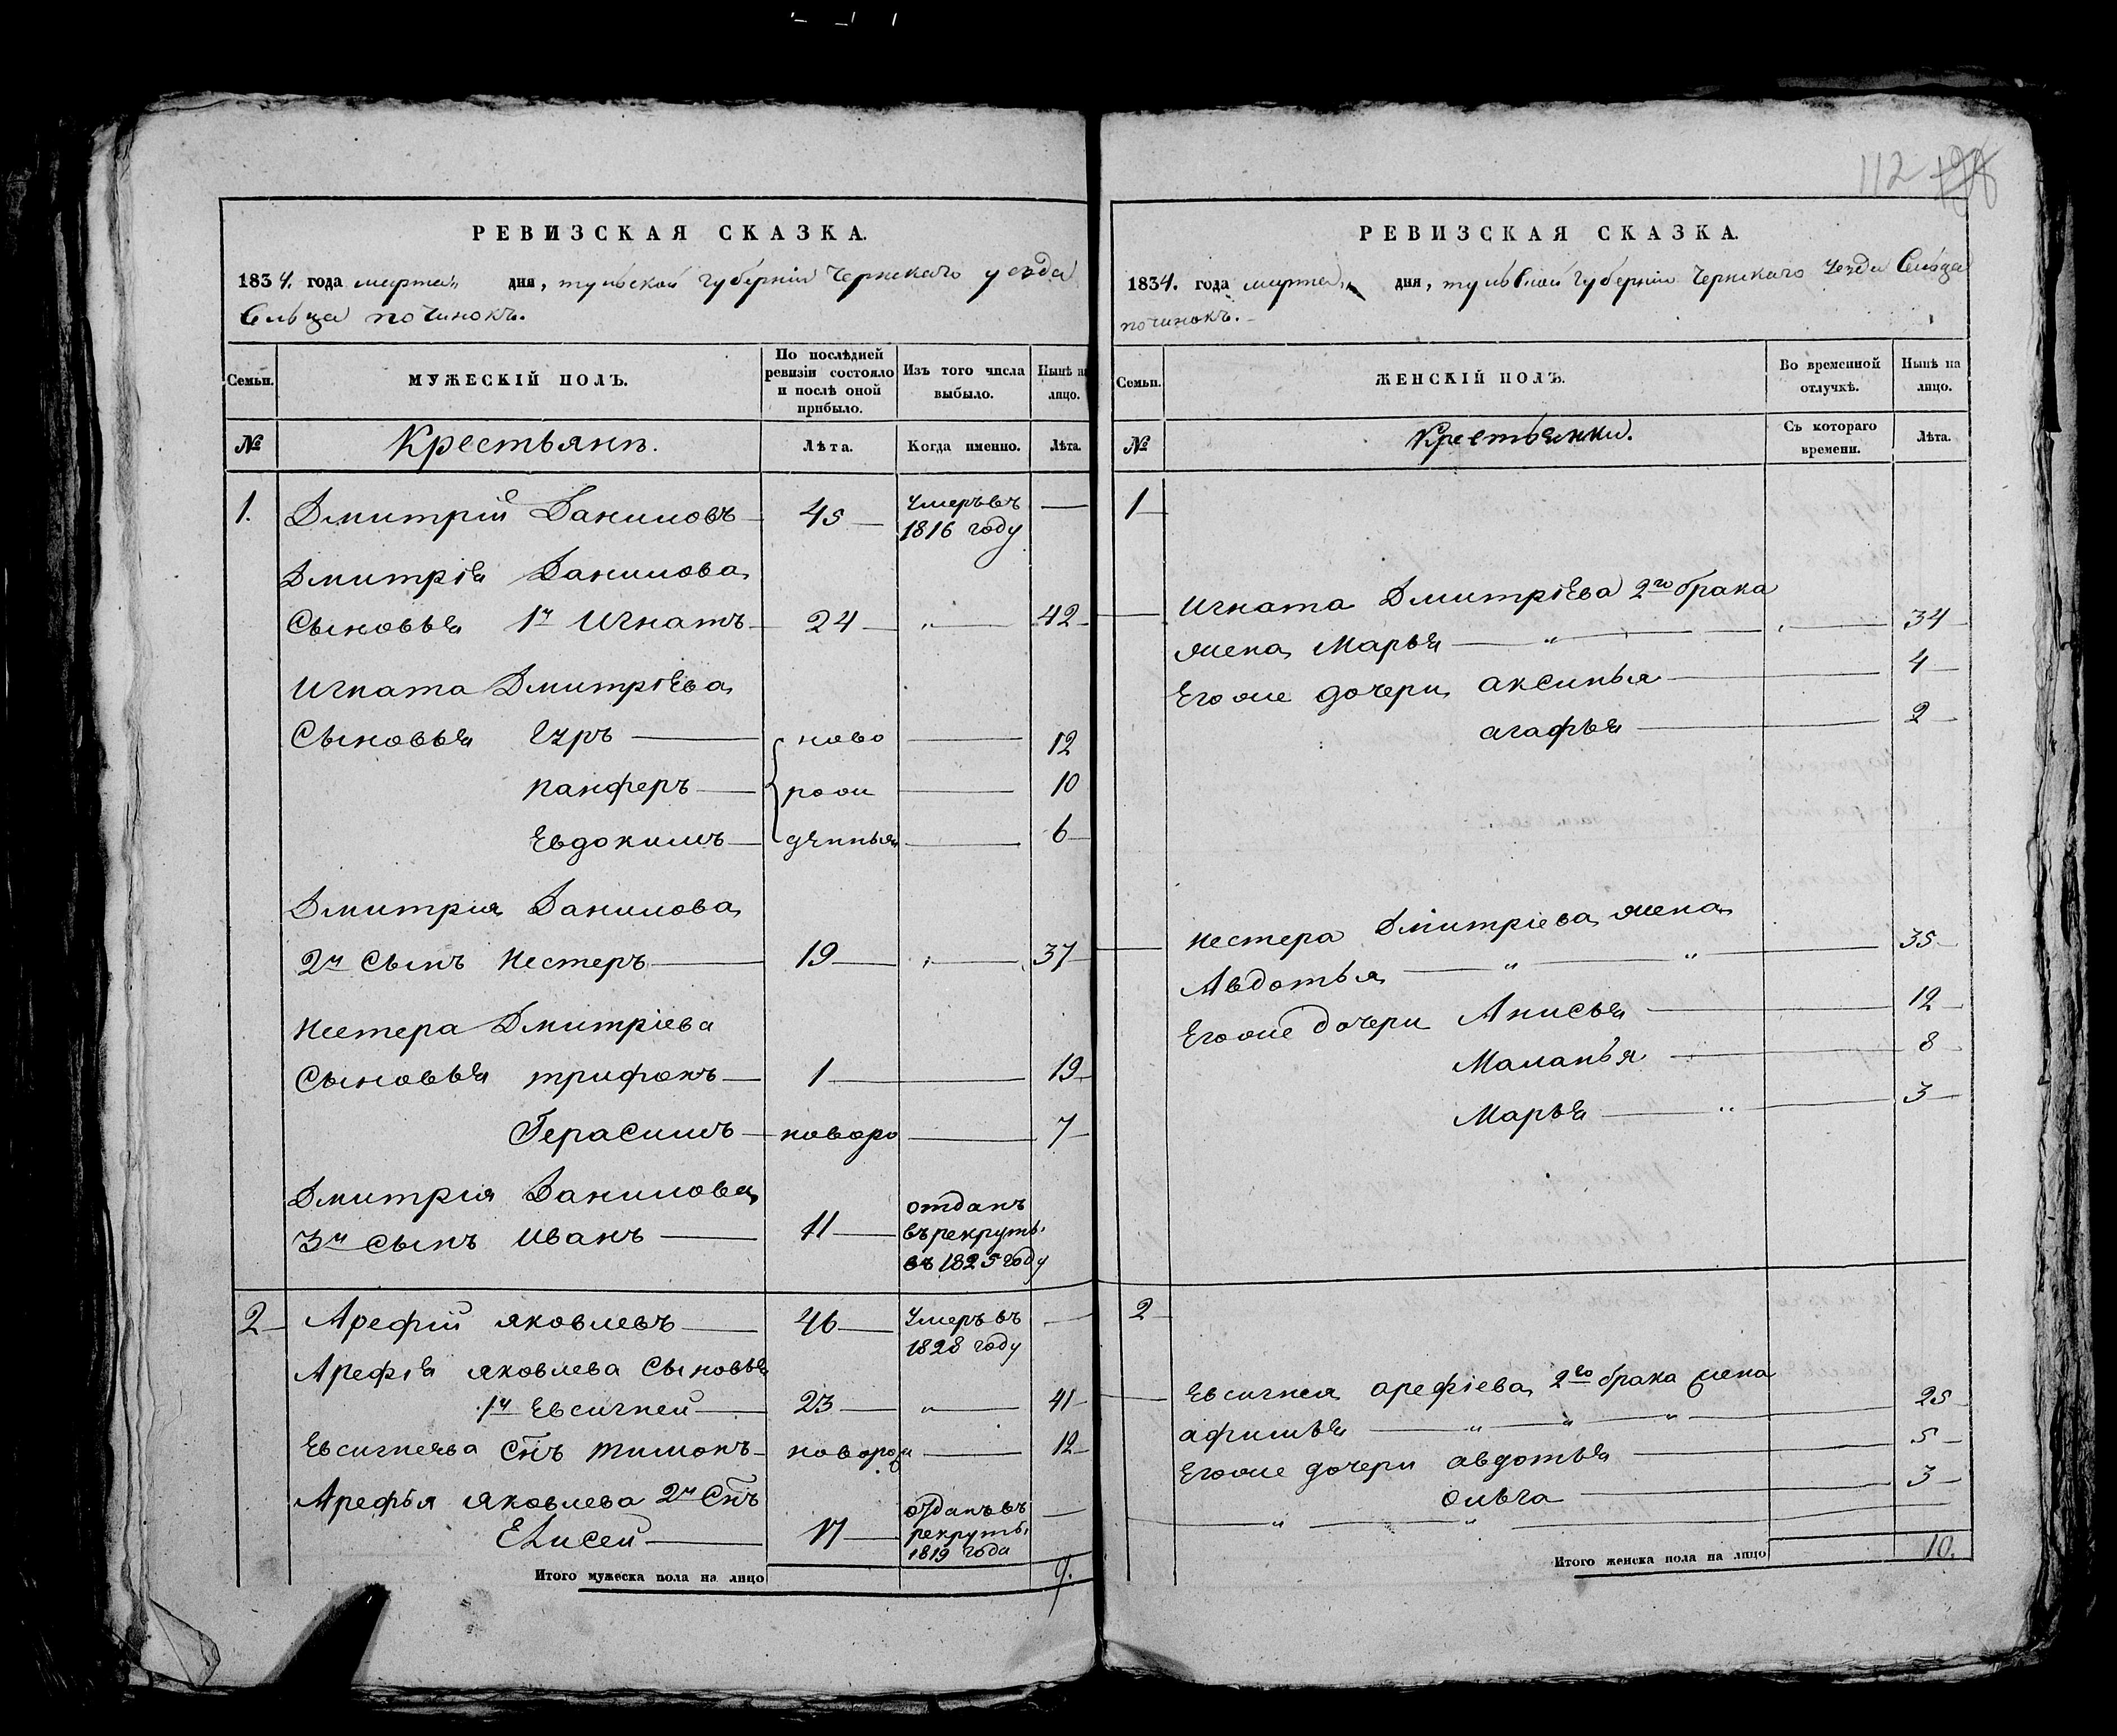 112
РЕВИЗСКАЯ СКАЗКА.
1834. года марта „ дня, тульской губернiи Чернскаго уезда
Сельца починокъ.
Семьи.
МУЖЕСКIЙ ПОЛЪ.
По послѣдней ревизiи состояло и послѣ оной прибыло.
Изъ того числа выбыло.
Нынѣ на лицо.
№
Крестьянъ.
Лѣта.
Когда именно.
Лѣта.
1. Дмитрiй Даниловъ — 45 — Умеръ въ —
1816 году
Дмитрiя Данилова
Сыновья 1й Игнатъ — 24 — „ — 42
Игната Дмитрiева
Сыновья — ново — 12
панферъ — рож — 10
Евдокимъ — дѣнныя — 6
Дмитрия Данилова
2й сынъ Нестеръ — 19 — „ — 37
Нестера Дмитрiева
Сыновья трифонъ — 1 — 19
Герасимъ — новоро — 7
Дмитрия Данилова
3й сынъ Иванъ — 11 — отданъ
въ рекруты
въ 1825 году
2 Арефiй яковлевъ — 46 — Умеръ въ —
1828 году
Арефiя яковлева Сыновья
1й Евсигней — 23 — „ — 41
Евсигнеева Снъ тимонъ — новорож — 12
Арефья яковлева 2й Снъ
Елисей — 17 — отданъ въ —
рекруты
1819 года
Итого мужеска пола на лицо 9.
РЕВИЗСКАЯ СКАЗКА.
1834. года марта „ дня, тульской губернiи Чернскаго Уезда Сельца
починокъ.
Семьи.
ЖЕНСКIЙ ПОЛЪ.
Во временной отлучкѣ.
Нынѣ на лицо.
№
Крестьянки.
Съ котораго времени.
Лѣта.
1
Игната Дмитрiева 2го брака
жена Марья — „ — 34
Егоже дочери аксинья — 4
агафья — 2
Нестера Дмитрiева жена
Авдотья — „ — „ — 35
Егоже дочери Анисья — 12
Маланья — 8
Марья — „ — 3
2
Евсигнея арефiева 2го брака жена
афимья — „ — „ — „ — 25
Егоже дочери авдотья — 5
Ольга — 3
Итого женска пола на лицо 10.